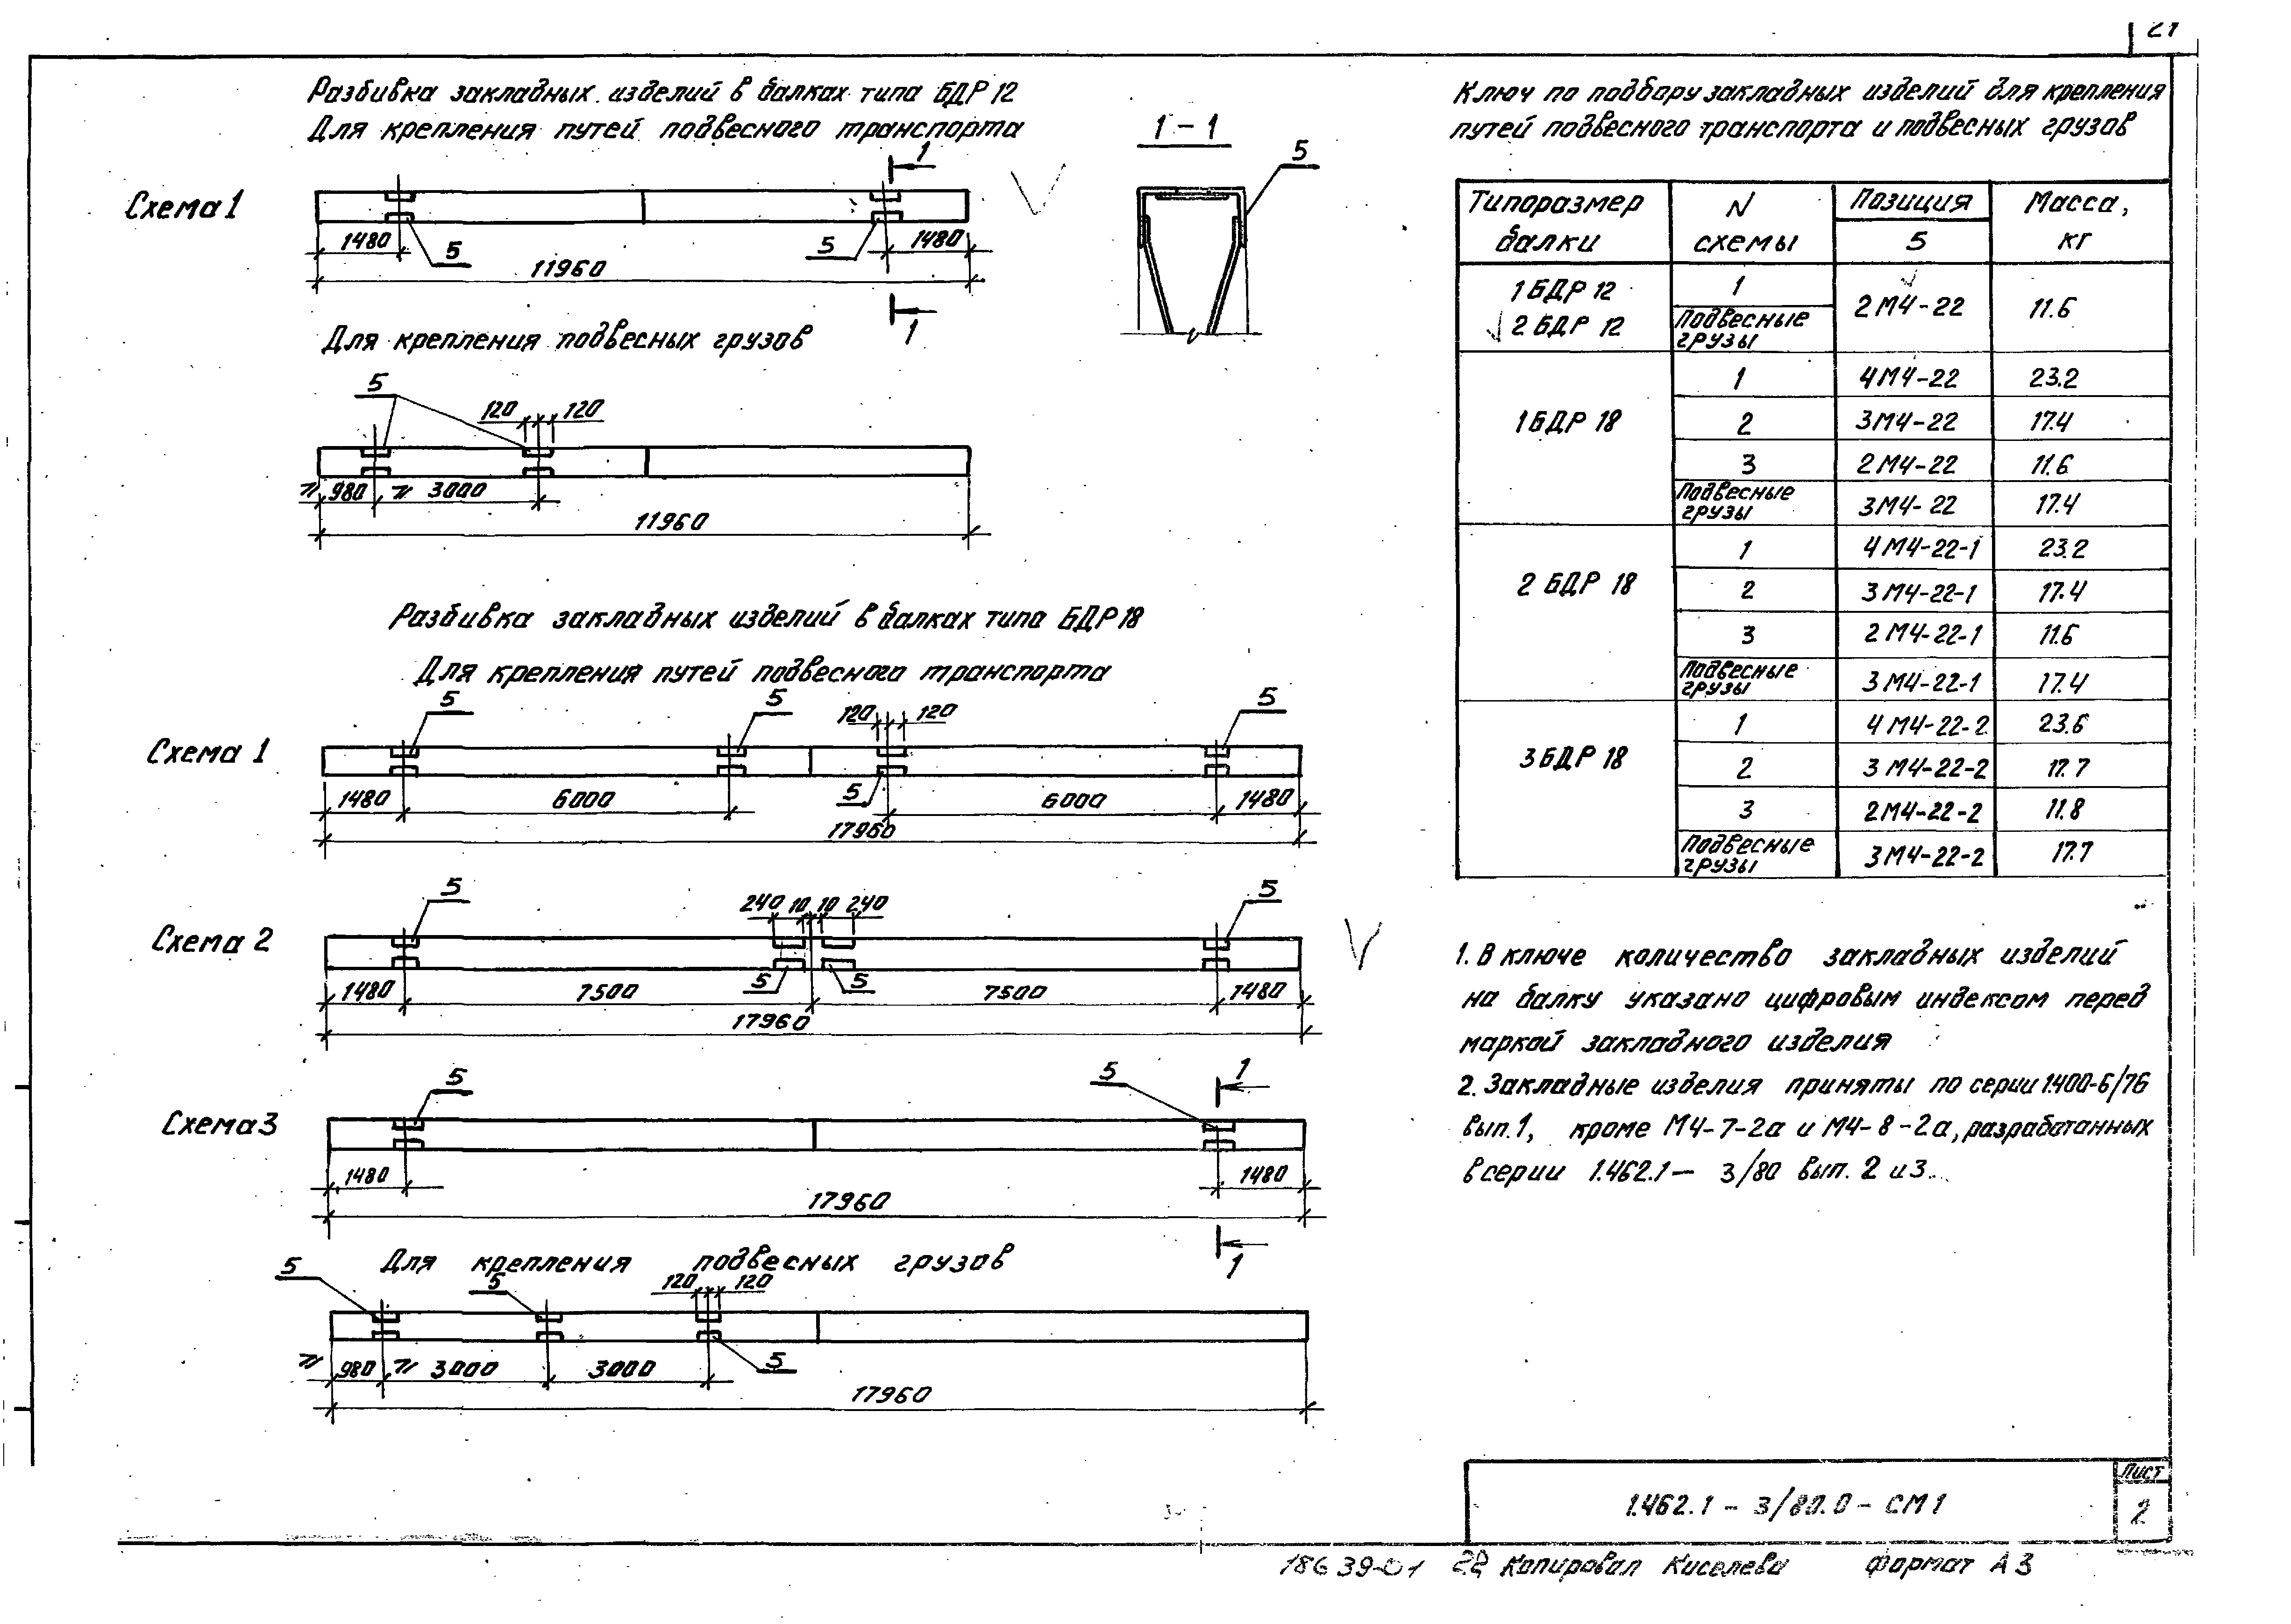 21
Разбивка закладных изделий в балках типа БДР 12
Для крепления путей подвесного транспорта
Схема 1
1
5
5
1480
1480
11960
1
1 - 1
5
Для крепления подвесных грузов
5
120 120
≥ 980 ≥ 3000
11960
Разбивка закладных изделий в балках типа БДР 18
Для крепления путей подвесного транспорта
Схема 1
5 5 120 120 5
5
1480 6000 6000 1480
17960
Схема 2
5 240 10 10 240 5
5 5
1480 7500 7500 1480
17960
Схема 3
5 5 1
1480 1480
17960
1
Для крепления подвесных грузов
5 5 120 120
5
≥ 980 ≥ 3000 3000
17960
Ключ по подбору закладных изделий для крепления
путей подвесного транспорта и подвесных грузов
Типоразмер балки N схемы Позиция 5 Масса, кг
1 БДР 12 1 2 М4-22 11.6
2 БДР 12 Подвесные грузы
1 БДР 18 1 4 М4-22 23.2
2 3 М4-22 17.4
3 2 М4-22 11.6
Подвесные грузы 3 М4-22 17.4
2 БДР 18 1 4 М4-22-1 23.2
2 3 М4-22-1 17.4
3 2 М4-22-1 11.6
Подвесные грузы 3 М4-22-1 17.4
3 БДР 18 1 4 М4-22-2 23.6
2 3 М4-22-2 17.7
3 2 М4-22-2 11.8
Подвесные грузы 3 М4-22-2 17.7
1. В ключе количество закладных изделий
на балку указано цифровым индексом перед
маркой закладного изделия
2. Закладные изделия приняты по серии 1.400-6/76
вып. 1, кроме М4-7-2а и М4-8-2а, разработанных
в серии 1.462.1-3/80 вып. 2 и 3.
1.462.1 - 3/80.0 - СМ 1
Лист
2
18639-01 22 Копировал Киселева формат А3